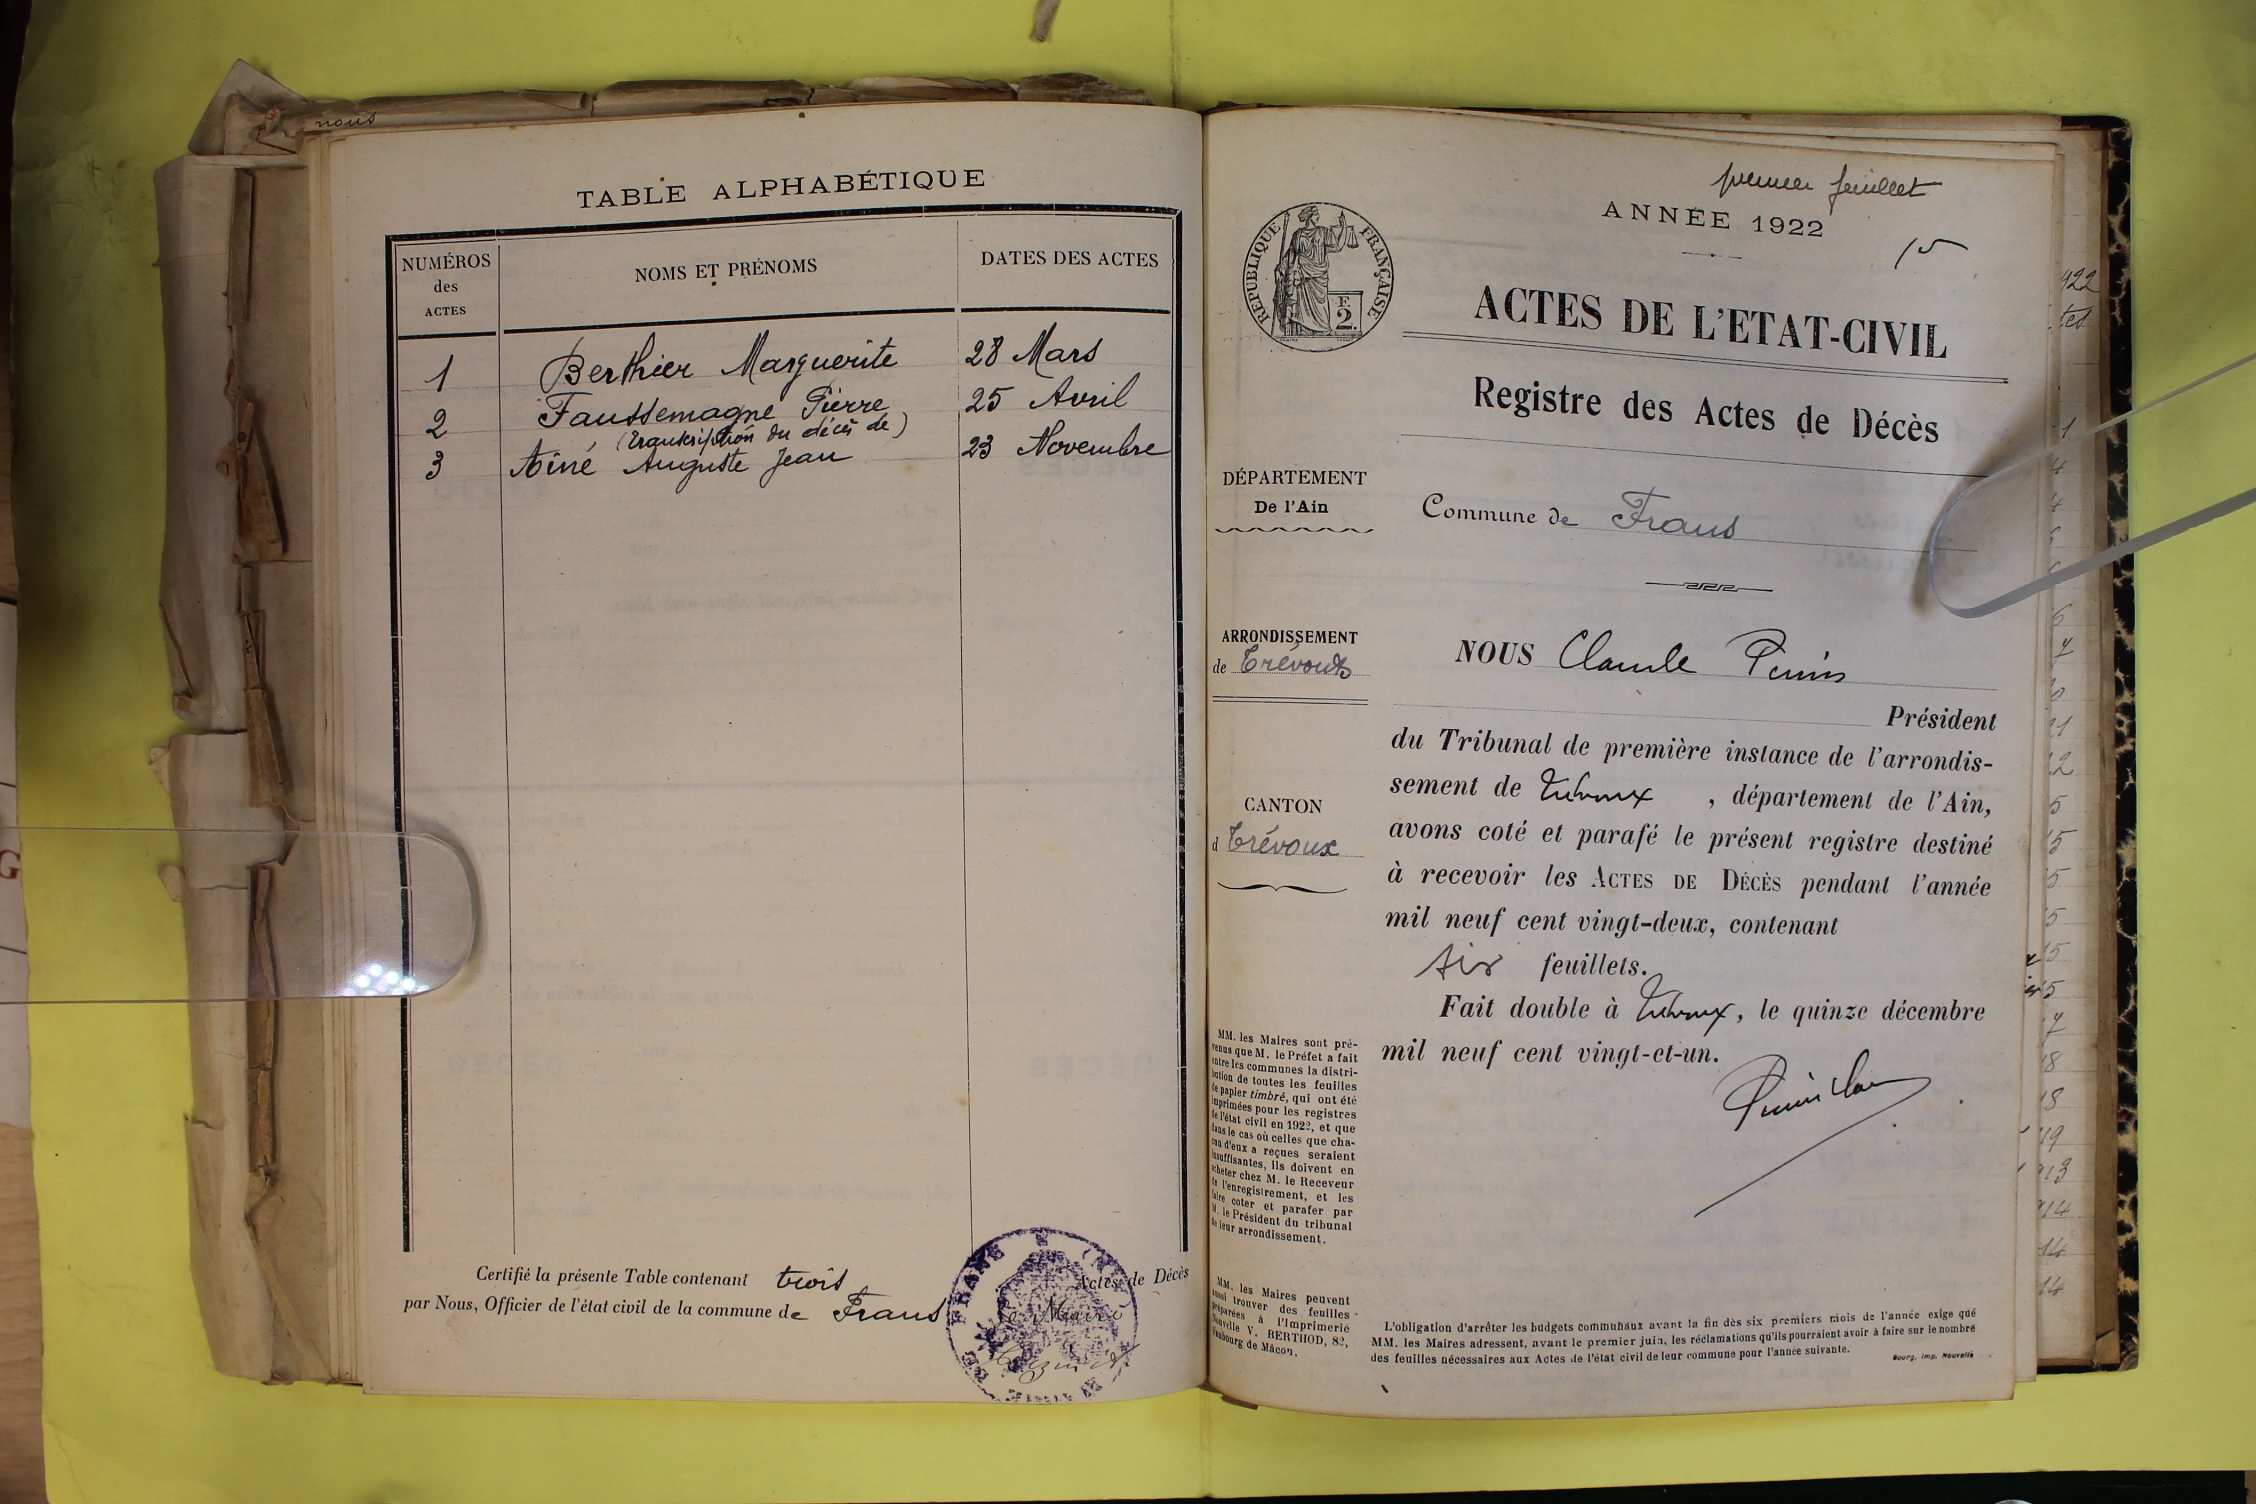 nous
TABLE ALPHABÉTIQUE
NUMÉROS
des
ACTES
NOMS ET PRÉNOMS
DATES DES ACTES
1 Berthier Marguerite 28 Mars
2 Faussemagne Pierre 25 Avril
(transkription du décès de)
3 Ainé Auguste Jean 23 Novembre
Certifié la présente Table contenant trois Actes de Décès
par Nous, Officier de l'état civil de la commune de Frans Le Maire
premier feuillet
ANNÉE 1922
15
RÉPUBLIQUE FRANÇAISE
F.
2.
ACTES DE L'ETAT-CIVIL
Registre des Actes de Décès
DÉPARTEMENT
De l'Ain
Commune de Frans
ARRONDISSEMENT
de Trévoux
CANTON
d Trévoux
NOUS Claude
Président
du Tribunal de première instance de l'arrondis-
sement de Trévoux , département de l'Ain,
avons coté et parafé le présent registre destiné
à recevoir les ACTES DE DÉCÈS pendant l'année
mil neuf cent vingt-deux, contenant
six feuillets.
Fait double à Trévoux, le quinze décembre
mil neuf cent vingt-et-un.
MM. les Maires sont pré-
venus que M. le Préfet a fait
entre les communes la distri-
bution de toutes les feuilles
de papier timbré, qui ont été
imprimées pour les registres
de l'état civil en 1922, et que
dans le cas où celles que cha-
cun d'eux a reçues seraient
insuffisantes, ils doivent en
acheter chez M. le Receveur
de l'enregistrement, et les
faire coter et parafer par
M. le Président du tribunal
de leur arrondissement.
MM. les Maires peuvent
aussi trouver des feuilles
préparées à l'Imprimerie
Nouvelle V. BERTHOD, 82,
Faubourg de Mâcon.
L'obligation d'arrêter les budgets communaux avant la fin des six premiers mois de l'année exige que
MM. les Maires adressent, avant le premier juin, les réclamations qu'ils pourraient avoir à faire sur le nombre
des feuilles nécessaires aux Actes de l'état civil de leur commune pour l'année suivante.
Bourg, Imp. Nouvelle